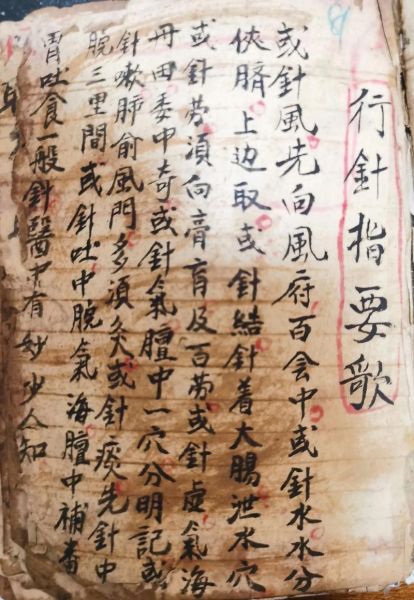 行針指要歌
或針風先向風府百会中或針水水分
俠臍上边取或針結針着大腸泄水穴
或針劳須向膏肓及百劳或針虛氣海
丹田委中奇或針氣膻中一穴分明記或
針嗽肺俞風門多須灸或針痰先針中
脘三里間或針吐中脘氣海膻中補番
胃吐食一般針醫中有妙少人知